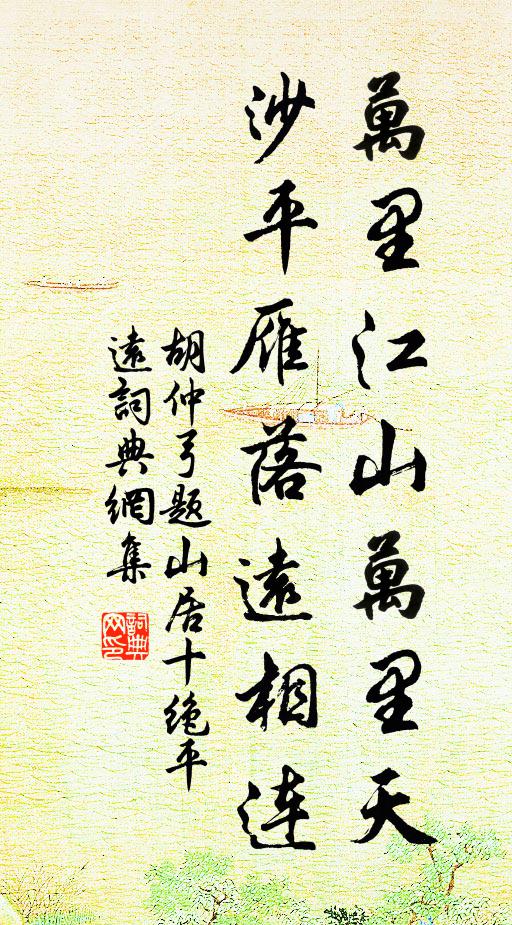 萬里江山萬里天
沙平雁落遠相連
胡仲弓題山居十絶平
遠詞典網集
詞典
网印